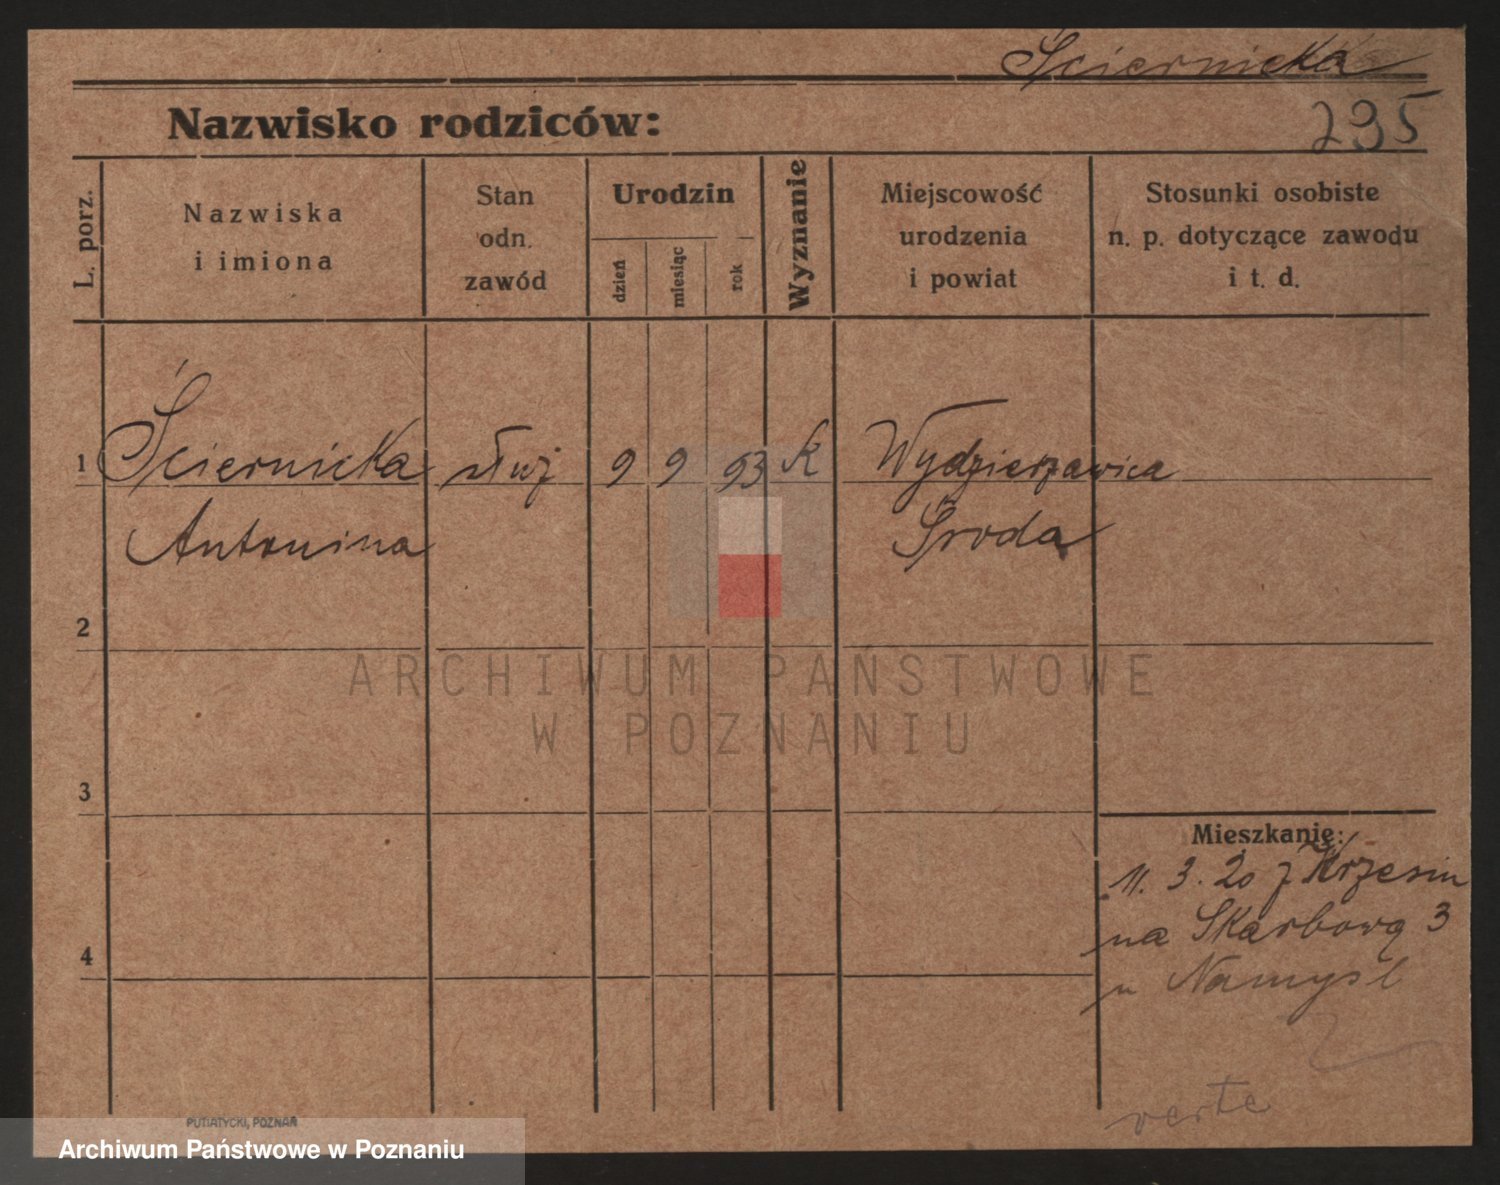 Ściernicka
Nazwisko rodziców:
295
L. porz.
Nazwiska
i imiona
Stan
odn.
zawód
Urodzin
dzień
miesiąc
rok
Wyznanie
Miejscowość
urodzenia
i powiat
Stosunki osobiste
n. p. dotyczące zawodu
i t. d.
1
Ściernicka
Antonina
służ
9
9
93
K
Wydzierzawica
Środa
2
ARCHIWUM PAŃSTWOWE
W POZNANIU
3
Mieszkanie:
11. 3. 20 z Krzesin
na Skarbową 3
u Namysl
4
verte
PUTIATYCKI, POZNAŃ
Archiwum Państwowe w Poznaniu